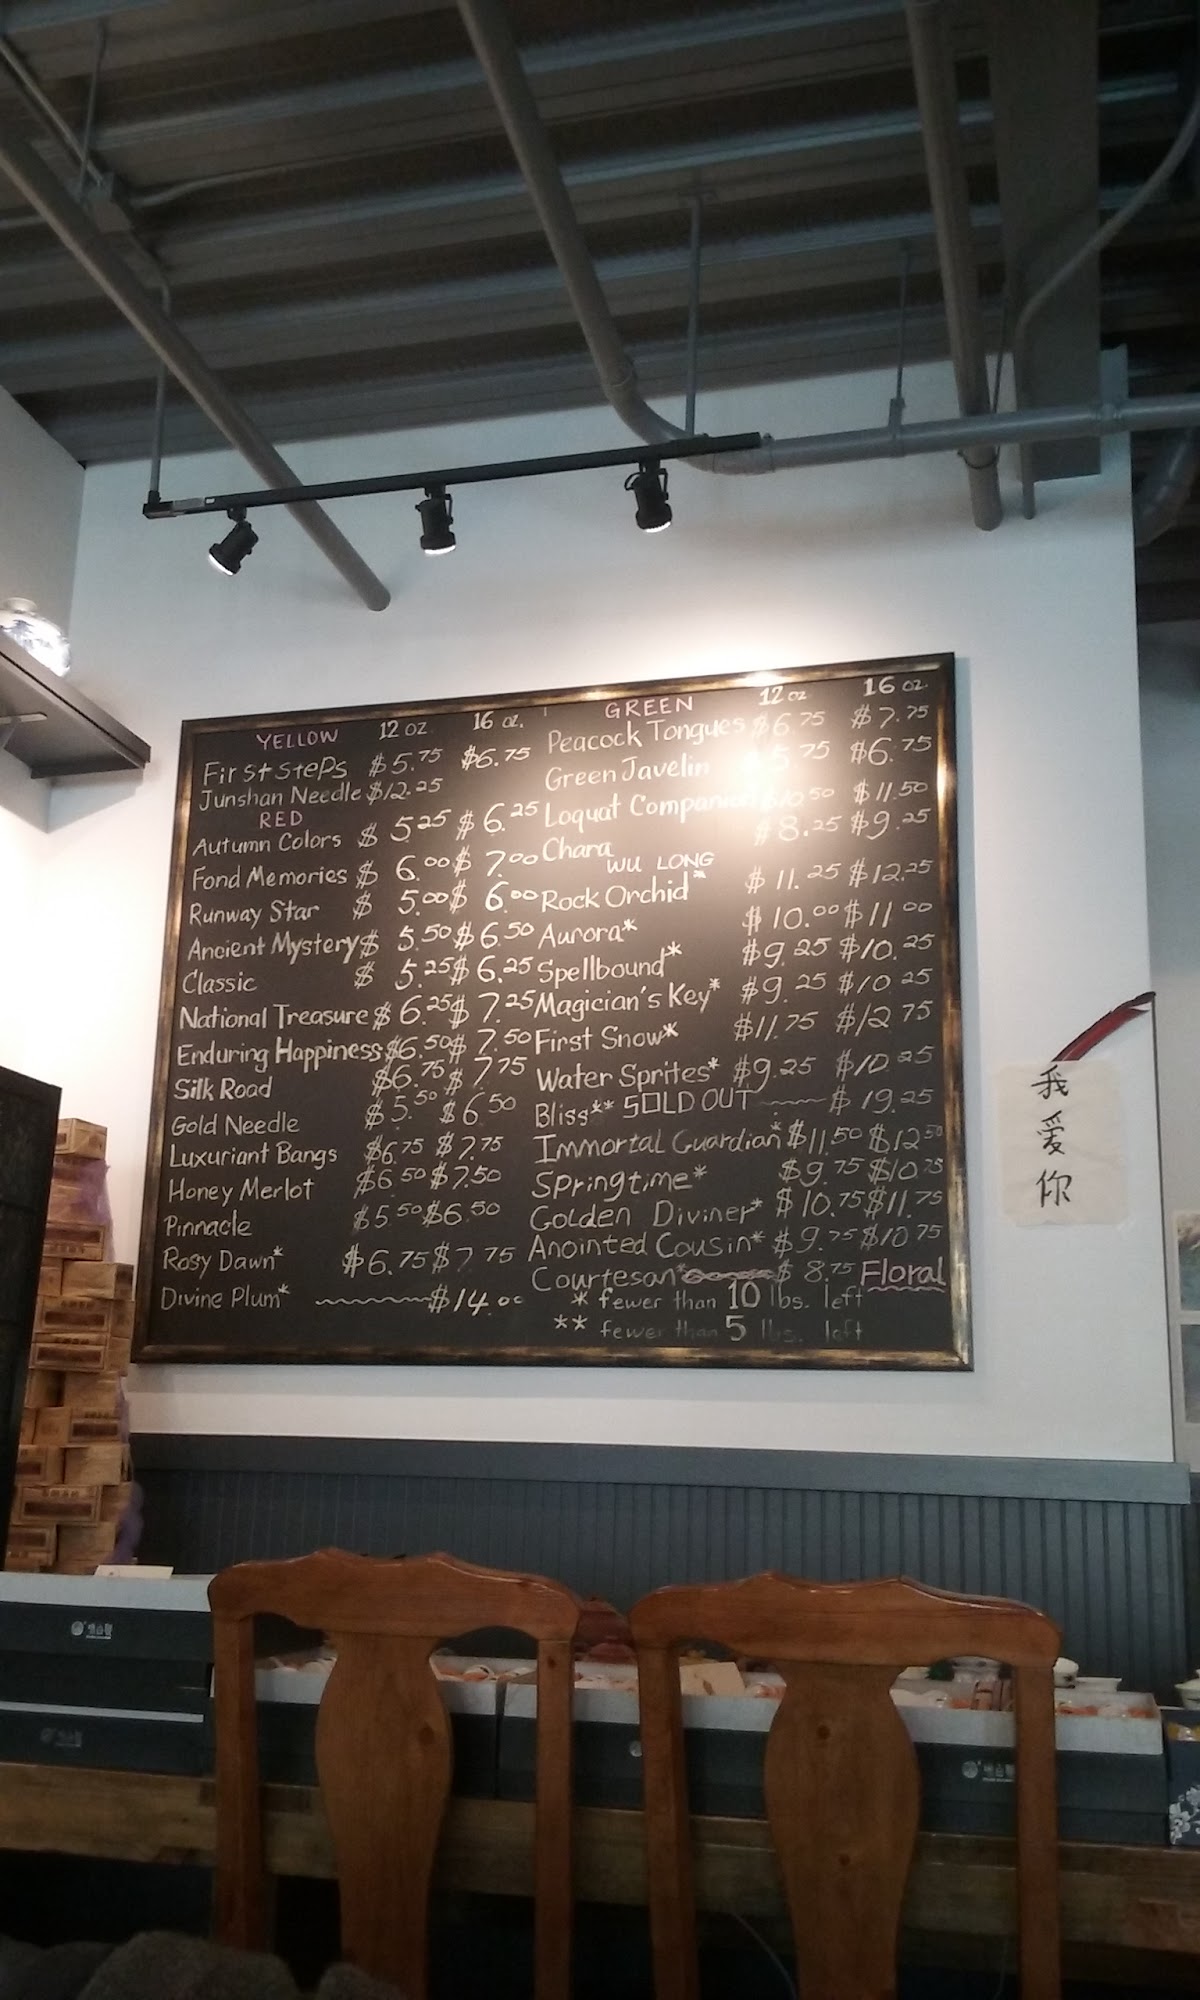 YELLOW 12 oz 16 oz.
First steps $5.75 $6.75
Junshan Needle $12.25
RED
Autumn Colors $5.25 $6.25
Fond Memories $6.00 $7.00
Runway Star $5.00 $6.00
Ancient Mystery $5.50 $6.50
Classic $5.25 $6.25
National Treasure $6.25 $7.25
Enduring Happiness $6.50 $7.50
Silk Road $6.75 $7.75
Gold Needle $5.50 $6.50
Luxuriant Bangs $6.75 $7.75
Honey Merlot $6.50 $7.50
Pinnacle $5.50 $6.50
Rosy Dawn* $6.75 $7.75
Divine Plum* $14.00
GREEN 12 oz 16 oz.
Peacock Tongues $6.75 $7.75
Green Javelin $5.75 $6.75
Loquat Companion $10.50 $11.50
Chara $8.25 $9.25
WU LONG
Rock Orchid* $11.25 $12.25
Aurora* $10.00 $11.00
Spellbound* $9.25 $10.25
Magician's Key* $9.25 $10.25
First Snow* $11.75 $12.75
Water Sprites* $9.25 $10.25
Bliss** SOLD OUT $19.25
Immortal Guardian* $11.50 $12.50
Springtime* $9.75 $10.75
Golden Diviner* $10.75 $11.75
Anointed Cousin* $9.75 $10.75
Courtesan* $8.75 Floral
* fewer than 10 lbs. left
** fewer than 5 lbs. left
我
爱
你